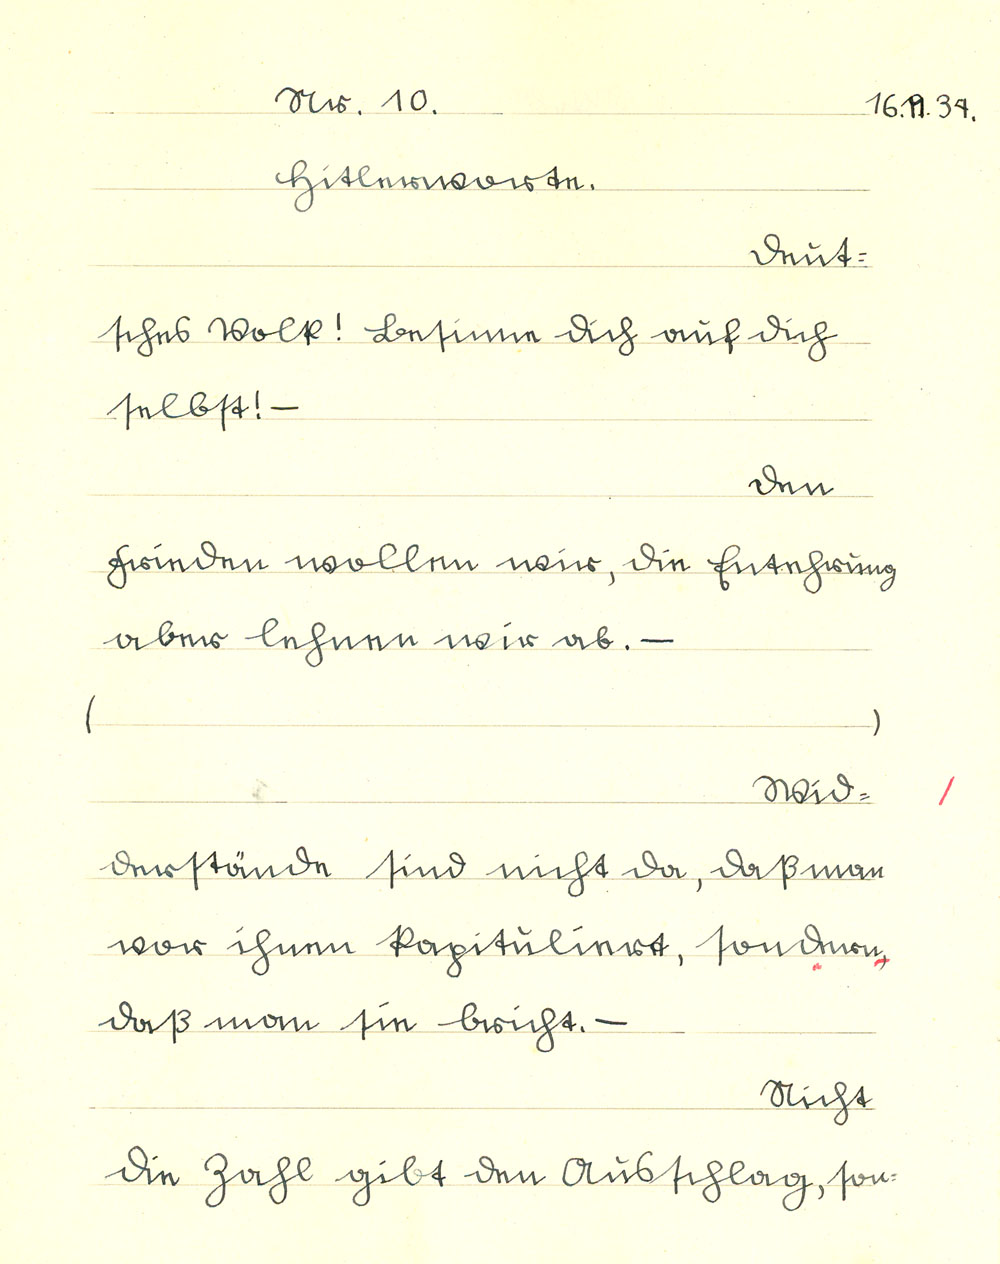 Nr. 10. 16.11.34.
Hitlerworte.
Deut=
sches Volk! Besinne dich auf dich
selbst!—
Den
Frieden wollen wir, die Entehrung
aber lehnen wir ab.—
( )
Wid=
derstände sind nicht da, daß man
vor ihnen kapituliert, sondern,
daß man sie bricht.—
Nicht
die Zahl gibt den Ausschlag, son=